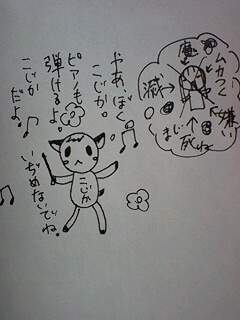 ムカつく
嫌い
魔
滅
まじ
死ね
やあ、ぼく
こじか。
ピアノも
弾けるよ。
こじか
だよ。
いぢめないでね。
こじか